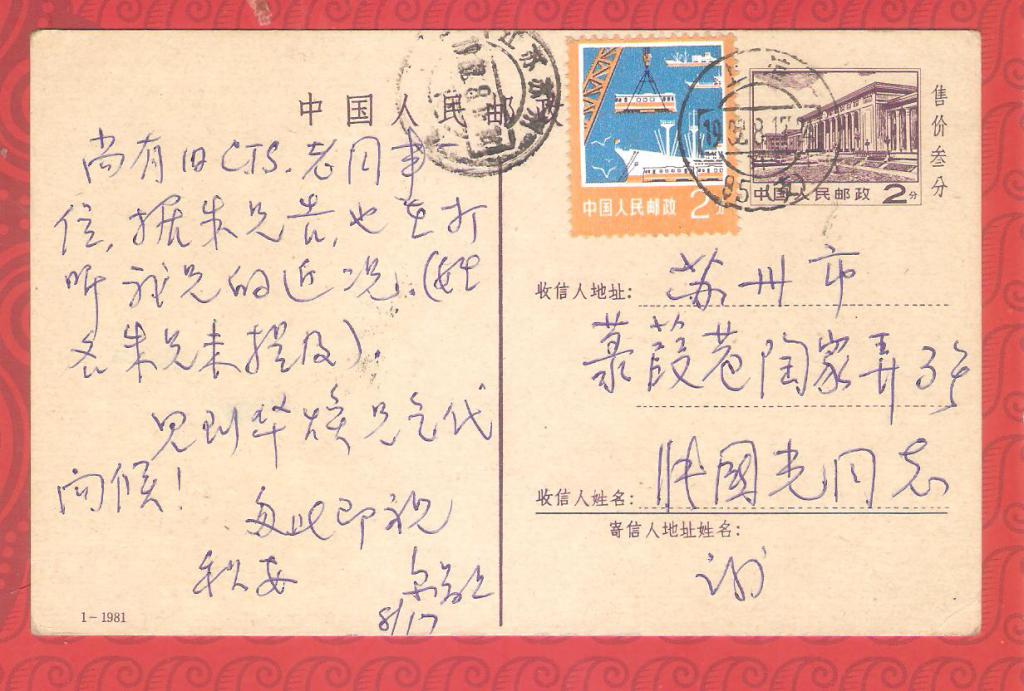 中国人民邮政
尚有旧CTS.老同事
信,据朱兄告,也在打
听 兄的近况.(姓
名朱兄未提及).
见到华焕兄乞代
问候!
专此即祝
秋安
8/17
1-1981
中国人民邮政 2分
19 8 17
中国人民邮政 2分
售价叁分
收信人地址: 苏州市
菉葭巷陶家弄3号
收信人姓名: 张國光同志
寄信人地址姓名:
谢